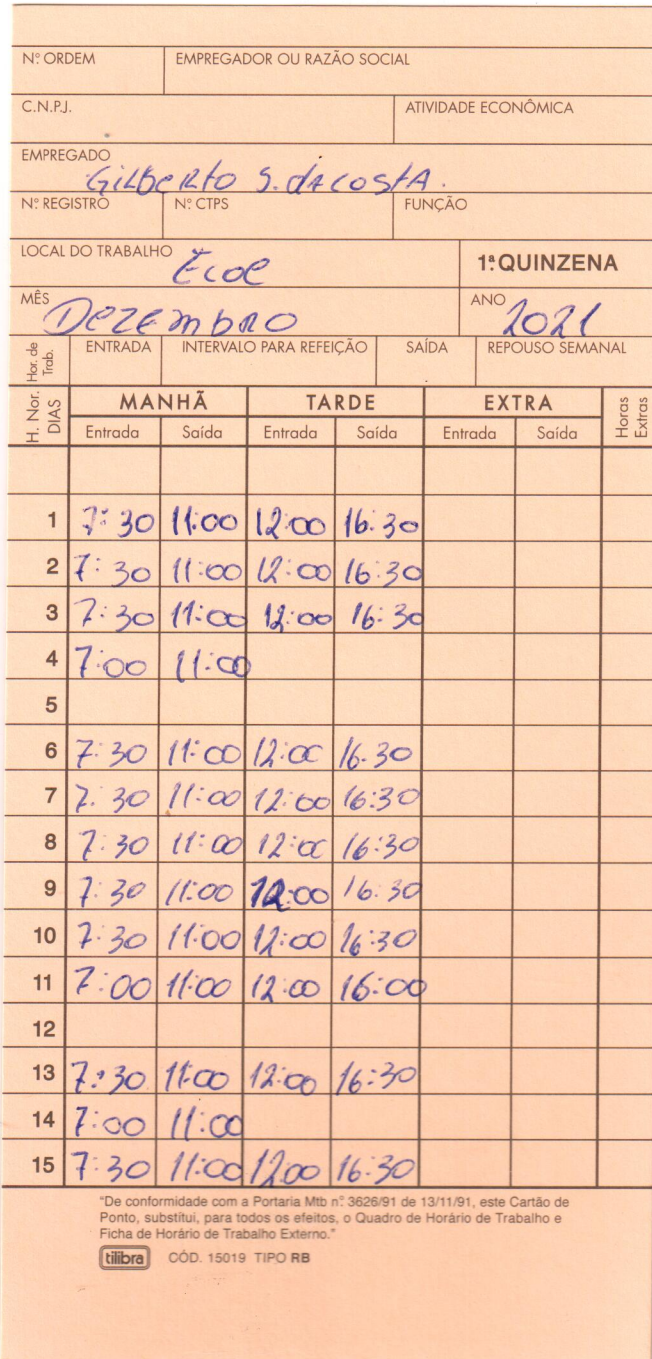 Nº ORDEM EMPREGADOR OU RAZÃO SOCIAL
C.N.P.J. ATIVIDADE ECONÔMICA
EMPREGADO
GILBERTO S. DA COSTA.
Nº REGISTRO Nº CTPS FUNÇÃO
LOCAL DO TRABALHO Ecoe 1ª QUINZENA
MÊS DEZEMBRO ANO 2021
Hor. de Trab. ENTRADA INTERVALO PARA REFEIÇÃO SAÍDA REPOUSO SEMANAL
H. Nor. DIAS MANHÃ TARDE EXTRA Horas Extras
Entrada Saída Entrada Saída Entrada Saída
1 7:30 11:00 12:00 16:30
2 7:30 11:00 12:00 16:30
3 7:30 11:00 12:00 16:30
4 7:00 11:00
5
6 7:30 11:00 12:00 16.30
7 7.30 11:00 12:00 16:30
8 7:30 11:00 12:00 16:30
9 7:30 11:00 12:00 16:30
10 7:30 11:00 12:00 16:30
11 7:00 11:00 12:00 16:00
12
13 7:30 11:00 12:00 16:30
14 7:00 11:00
15 7:30 11:00 12:00 16:30
"De conformidade com a Portaria Mtb nº 3626/91 de 13/11/91, este Cartão de
Ponto, substitui, para todos os efeitos, o Quadro de Horário de Trabalho e
Ficha de Horário de Trabalho Externo."
tilibra CÓD. 15019 TIPO RB